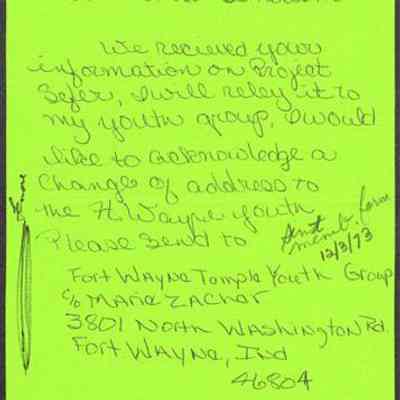 We recieved your
information on Project
Sefer, I will relay it to
my youth group. I would
like to acknowledge a
Change of address to
the Ft. Wayne youth
Please send to
Sent
memb. form
12/3/73
Fort Wayne Temple Youth Group
c/o Marie Zachar
3801 North Washington Rd.
Fort Wayne, Ind
46804